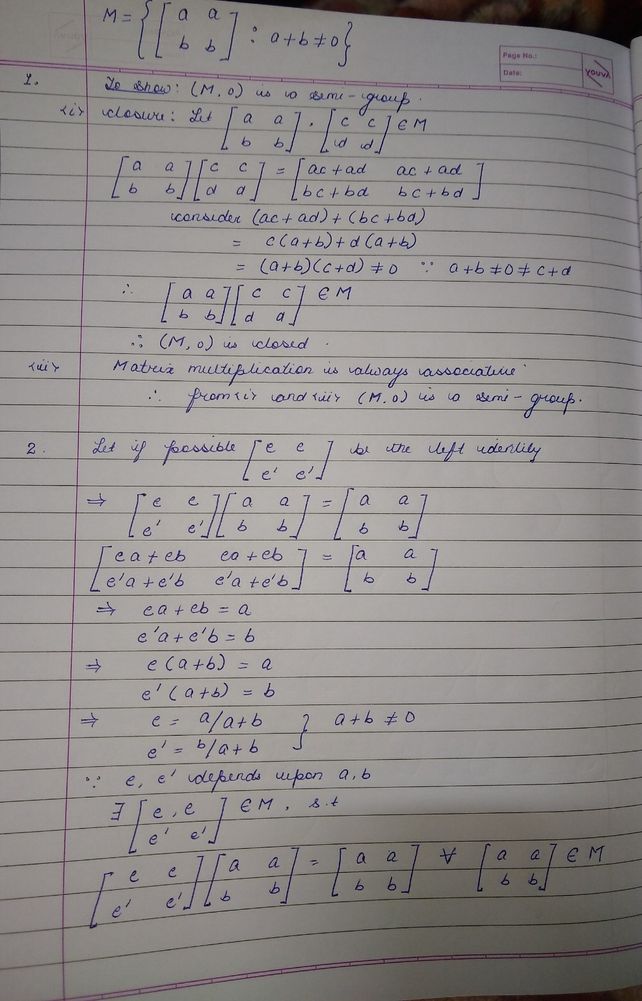 M = { [ a a
b b ] : a+b ≠ 0 }
Page No.:
Date:
youva
1. To show: (M, o) is a semi-group.
<i> closure: Let [ a a
b b ] , [ c c
d d ] ∈ M
[ a a
b b ] [ c c
d d ] = [ ac+ad ac+ad
bc+bd bc+bd ]
consider (ac+ad)+(bc+bd)
= c(a+b)+d(a+b)
= (a+b)(c+d) ≠ 0 ∵ a+b ≠ 0 ≠ c+d
∴ [ a a
b b ] [ c c
d d ] ∈ M
∴ (M, o) is closed.
<ii> Matrix multiplication is always associative
∴ from <i> and <ii> (M, o) is a semi-group.
2. Let if possible [ e e
e' e' ] be the left identity
⇒ [ e e
e' e' ] [ a a
b b ] = [ a a
b b ]
[ ea+eb ea+eb
e'a+e'b e'a+e'b ] = [ a a
b b ]
⇒ ea+eb = a
e'a+e'b = b
⇒ e(a+b) = a
e'(a+b) = b
⇒ e = a/a+b } a+b ≠ 0
e' = b/a+b
∵ e, e' depends upon a, b
∃ [ e, e
e' e' ] ∈ M, s.t
[ e e
e' e' ] [ a a
b b ] = [ a a
b b ] ∀ [ a a
b b ] ∈ M